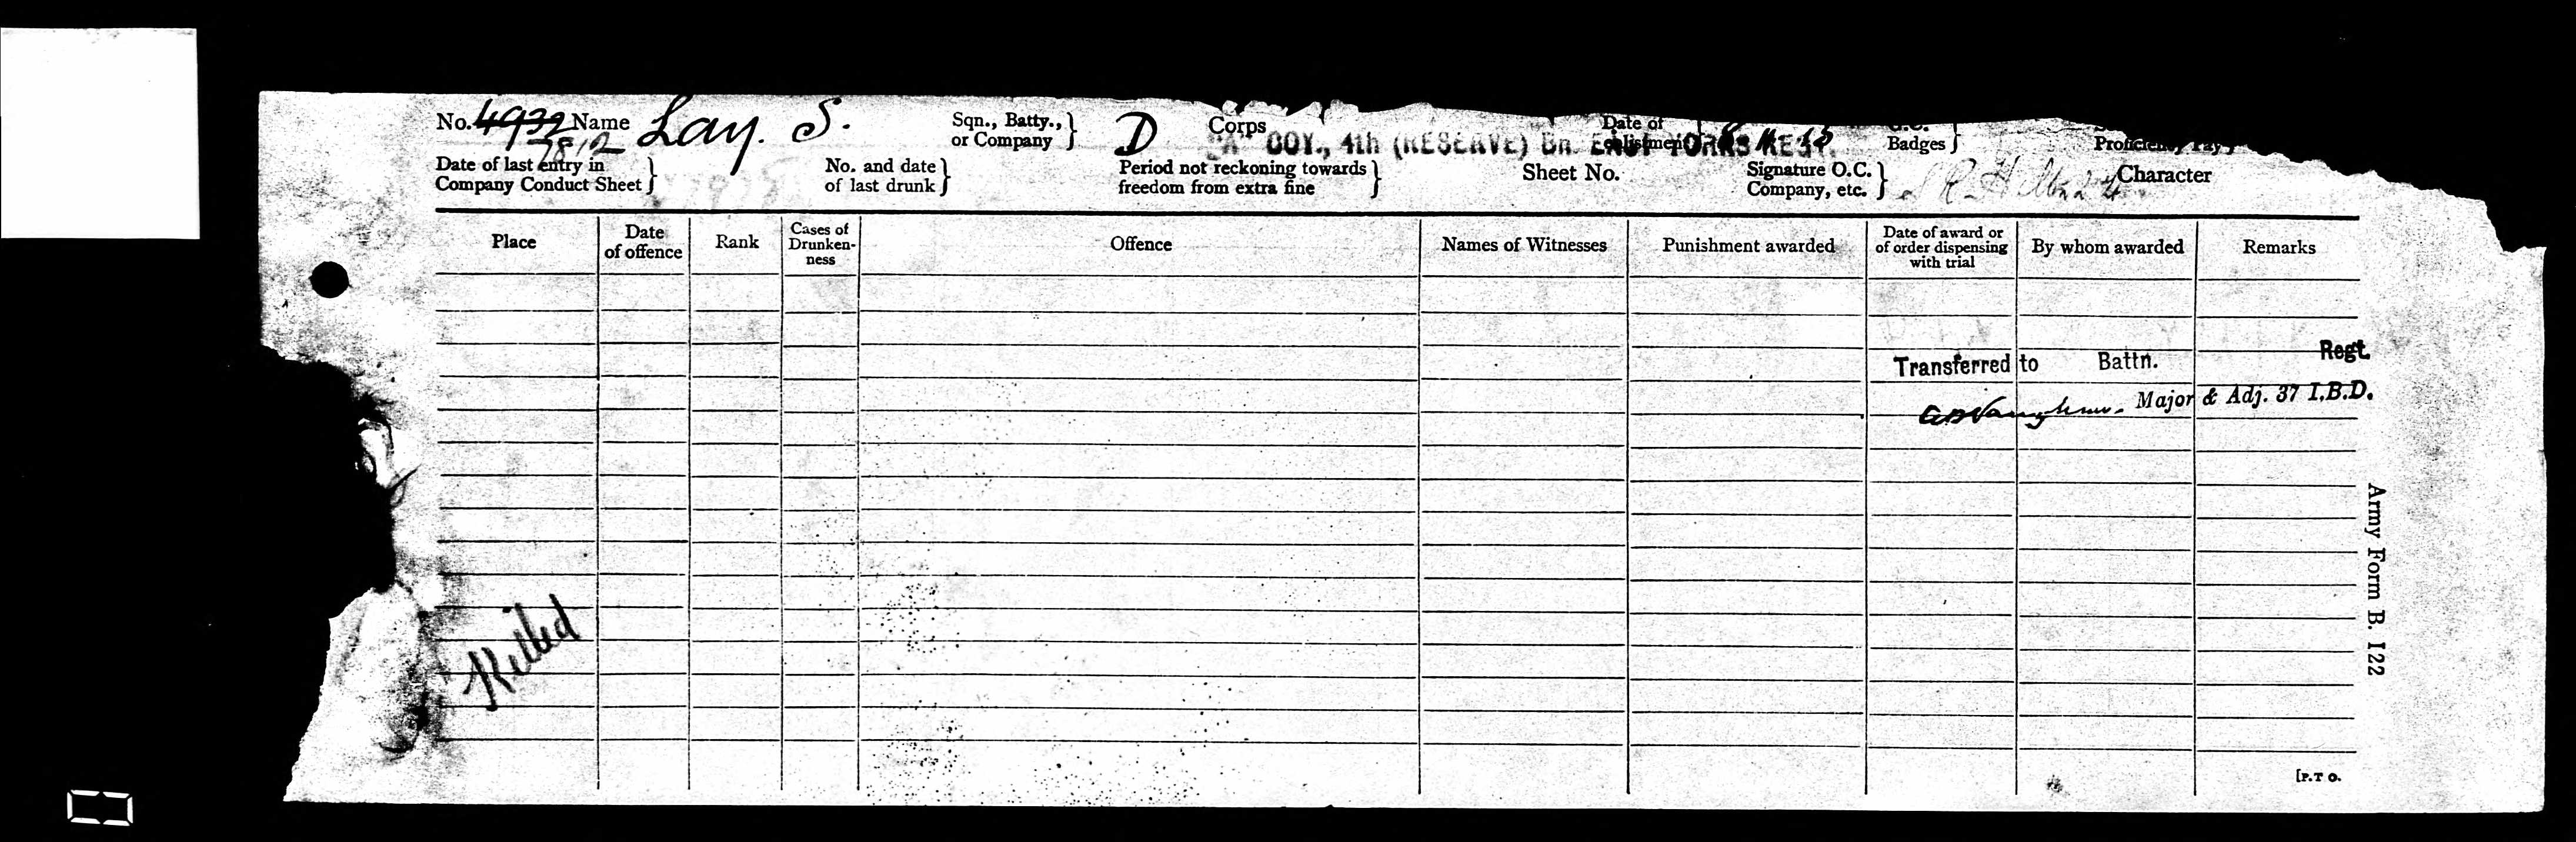 No. 4932 Name Lay. S. Sqn., Batty., or Company } D Corps Date of Enlistment G.C. Badges } Proficiency Pay
7812
"A" COY., 4th (RESERVE) Bn. EAST YORKS REGT.
Date of last entry in Company Conduct Sheet } No. and date of last drunk } Period not reckoning towards freedom from extra fine } Sheet No. Signature O.C. Company, etc. } Character
Place Date of offence Rank Cases of Drunken-ness Offence Names of Witnesses Punishment awarded Date of award or of order dispensing with trial By whom awarded Remarks
Transferred to Battn. Regt.
Major & Adj. 37 I.B.D.
Army Form B. 122
Killed
[P.T O.